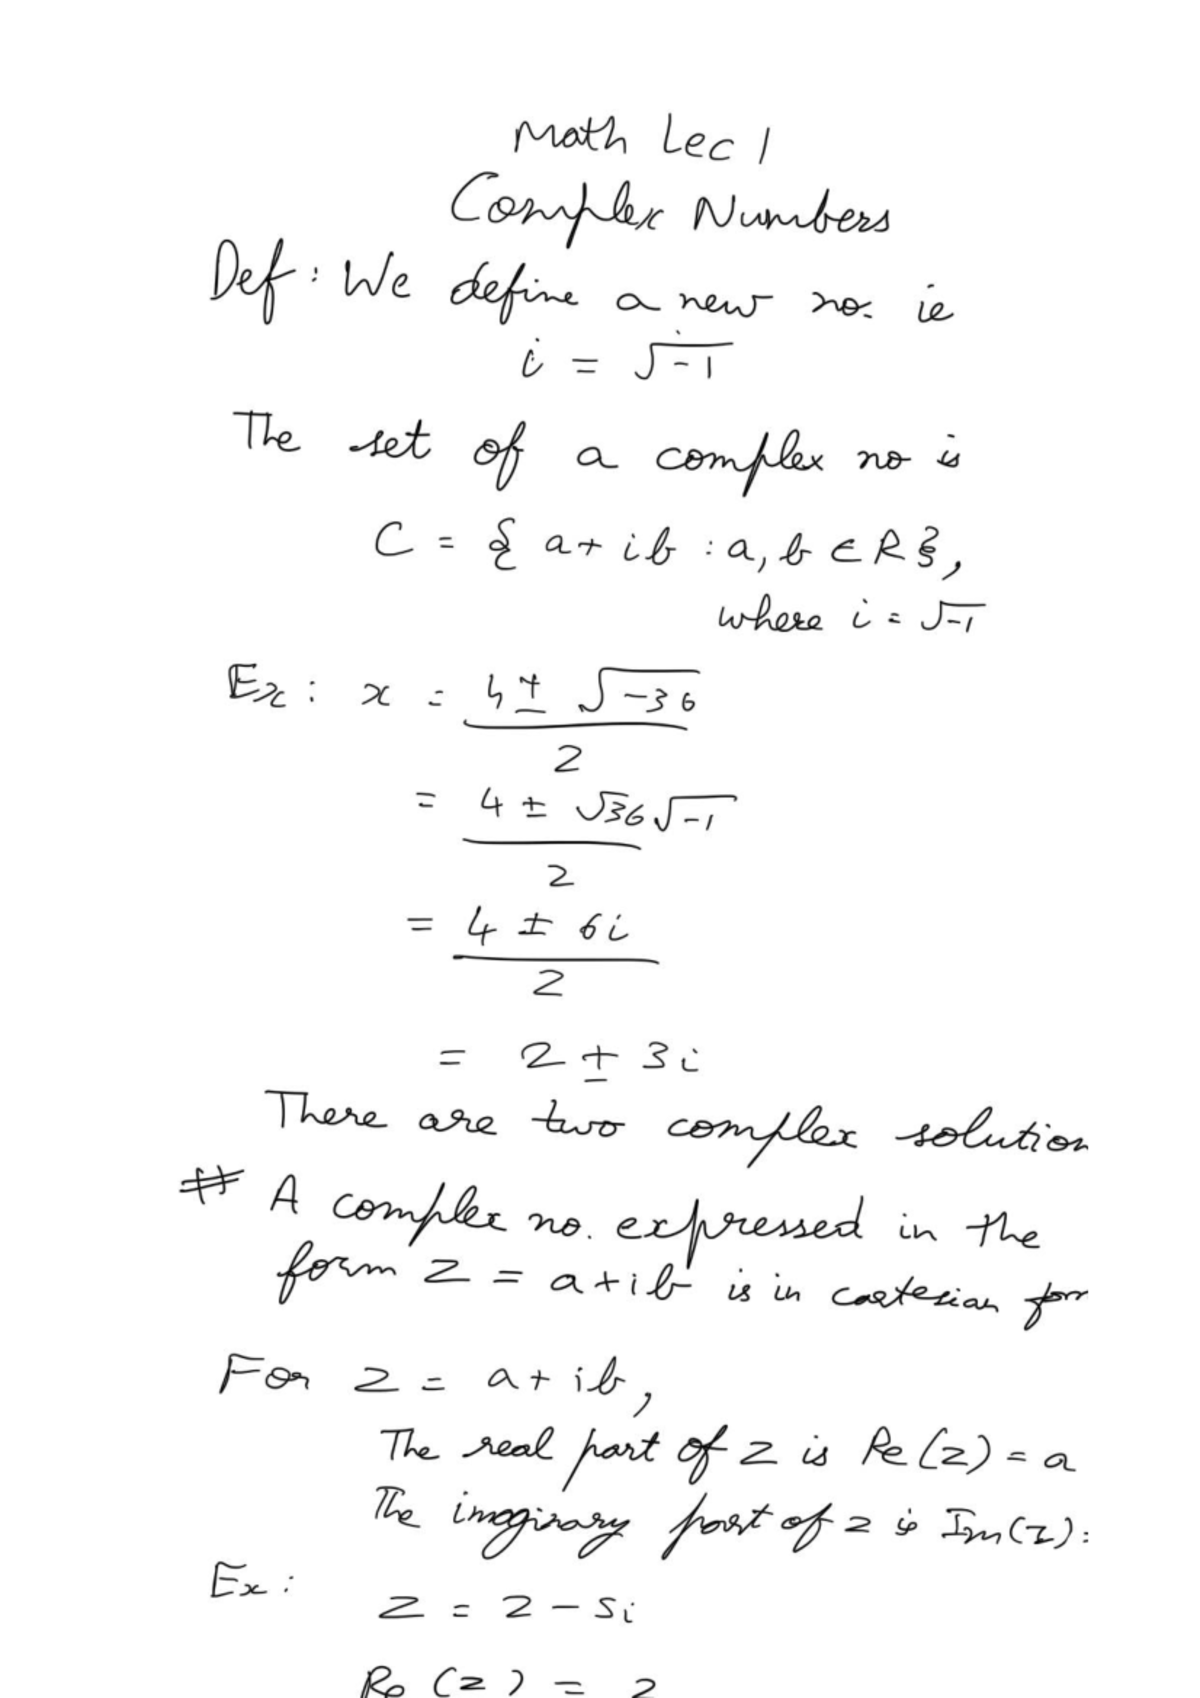 Math Lec 1
Complex Numbers
Def : We define a new no. ie
i = √-1
The set of a complex no is
C = { a + ib : a, b ∈ R },
where i = √-1
Ex : x = 4 ± √-36
2
= 4 ± √36 √-1
2
= 4 ± 6i
2
= 2 ± 3i
There are two complex solution
# A complex no. expressed in the
form z = a + ib is in cartesian for
For z = a + ib,
The real part of z is Re(z) = a
The imaginary part of z is Im(z) =
Ex :
z = 2 - 5i
Re (z) = 2